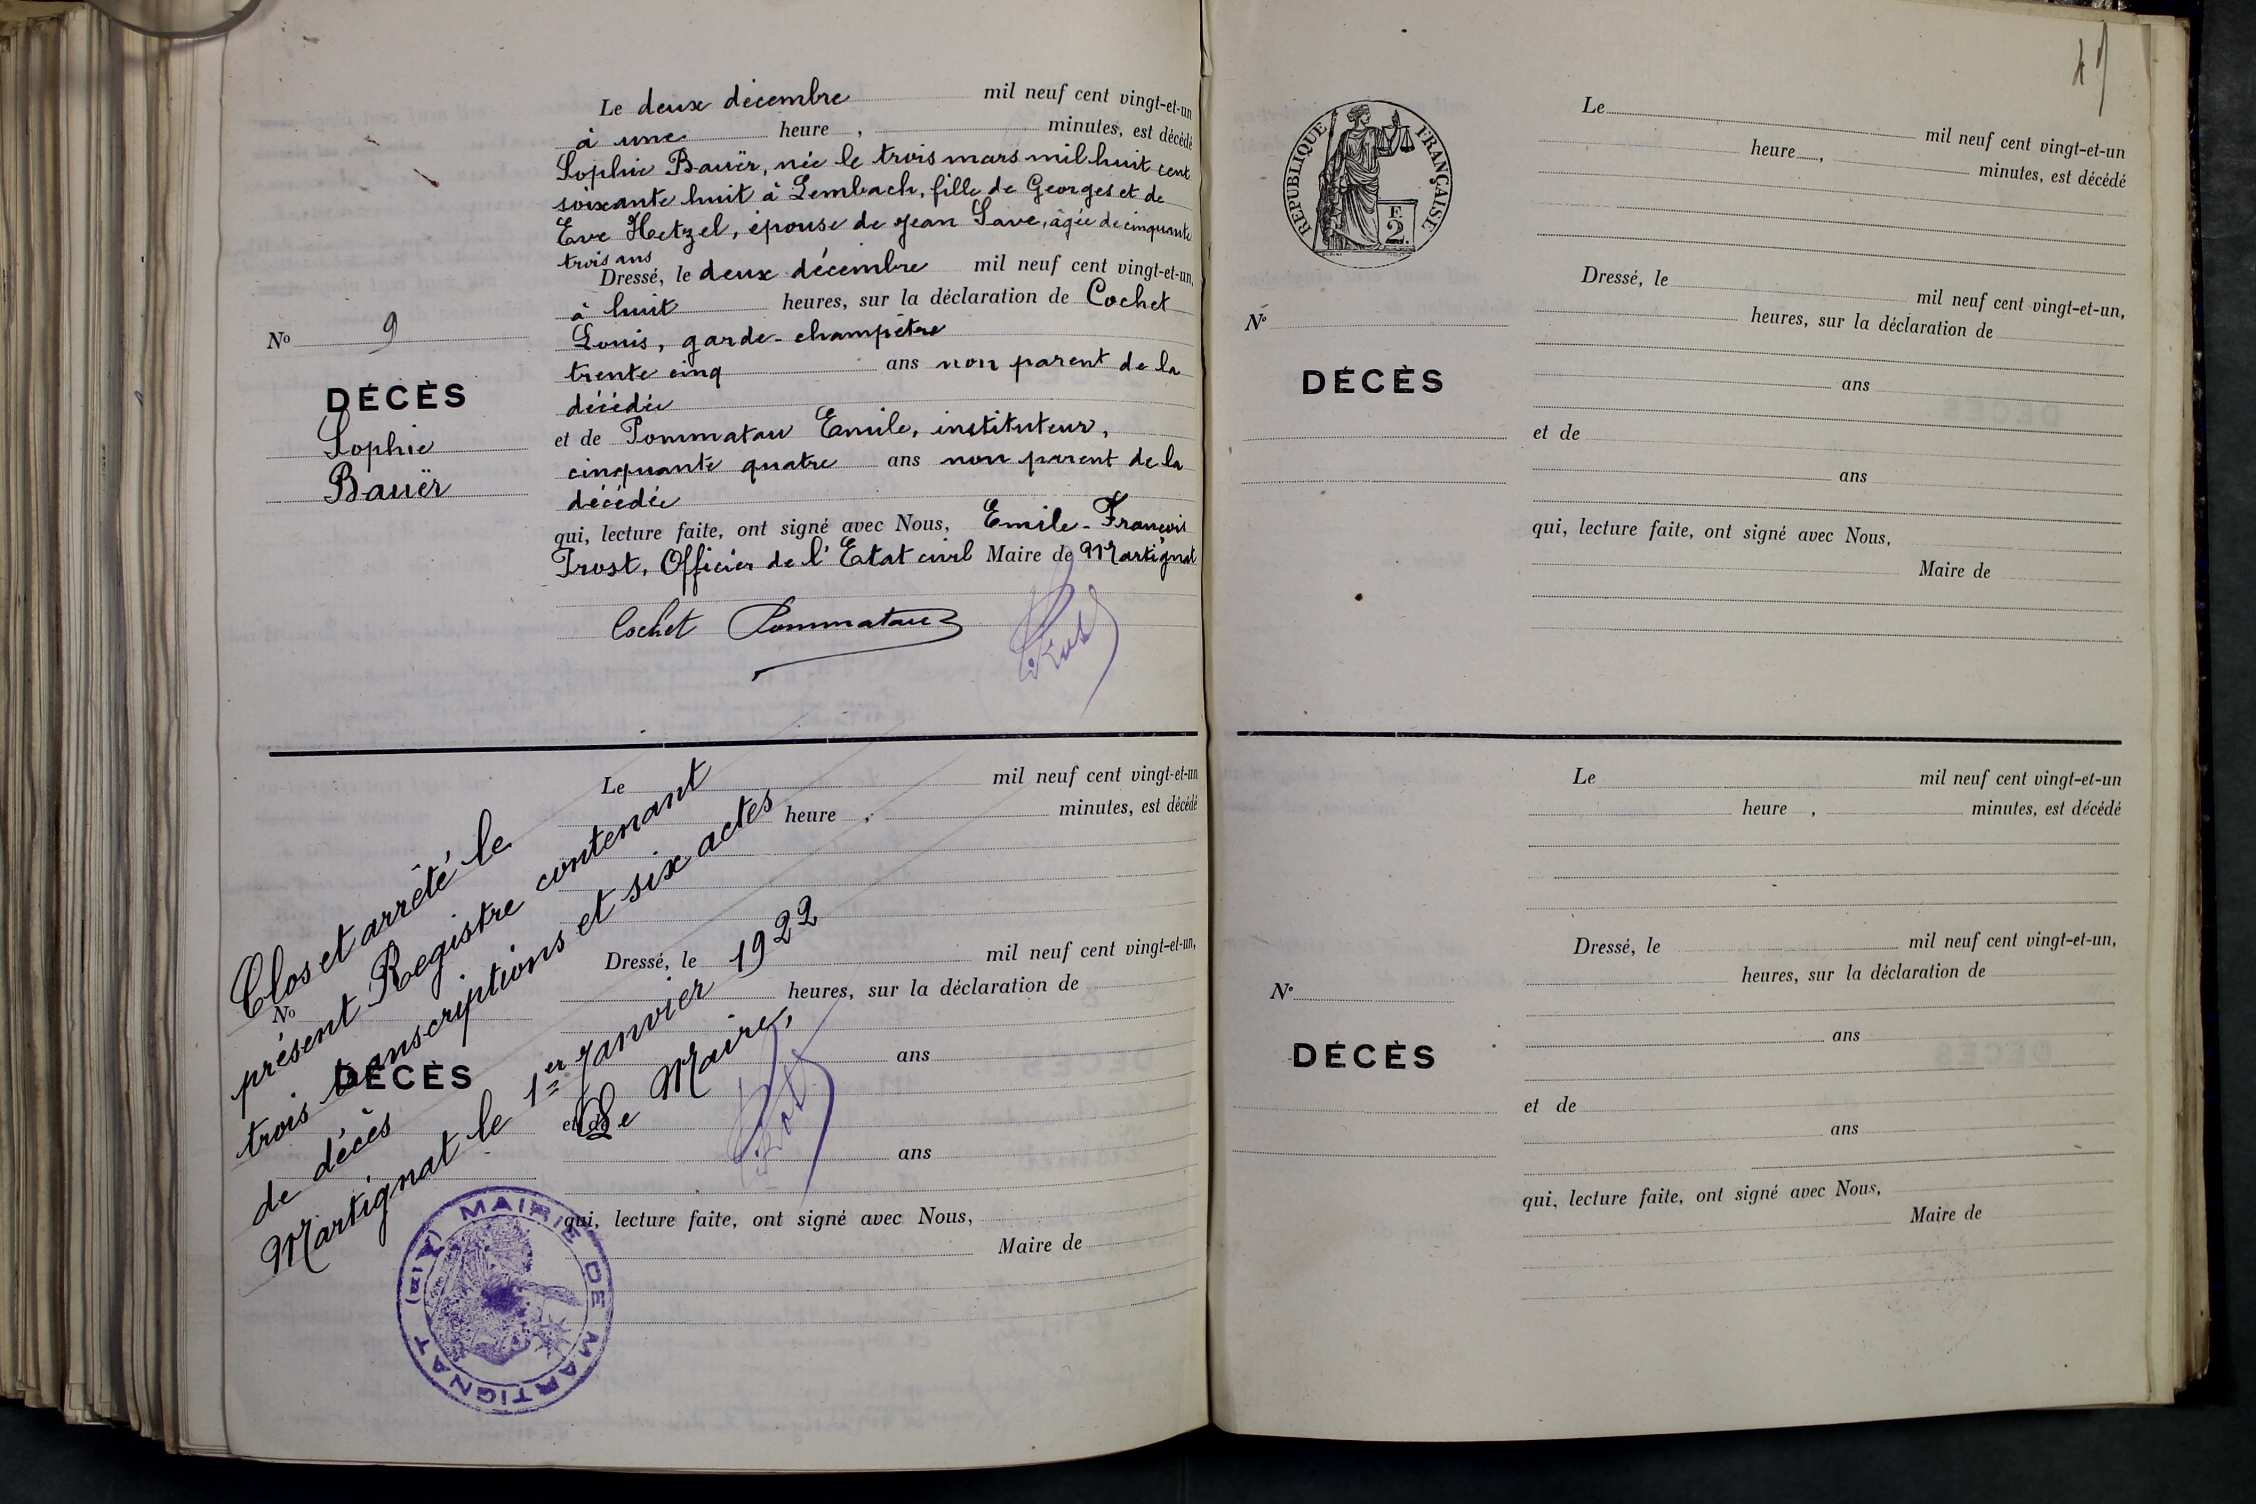 Le deux décembre mil neuf cent vingt-et-un
à une heure , minutes, est décédé
Sophie Bauër, née le trois mars mil huit cent
soixante huit à Lembach, fille de Georges et de
Eve Hetzel, épouse de Jean Save, âgée de cinquante
trois ans
Dressé, le deux décembre mil neuf cent vingt-et-un,
à huit heures, sur la déclaration de Cochet
Louis, garde-champêtre
trente cinq ans non parent de la
décédée
et de Pommatau Emile, instituteur,
cinquante quatre ans non parent de la
décédée
qui, lecture faite, ont signé avec Nous, Emile-François
Prost, Officier de l'Etat civil Maire de Martignat
Cochet Pommatau
Prost
No 9
DÉCÈS
Sophie
Bauër
Le mil neuf cent vingt-et-un
heure , minutes, est décédé
Dressé, le mil neuf cent vingt-et-un,
heures, sur la déclaration de
ans
et de
ans
qui, lecture faite, ont signé avec Nous,
Maire de
No
DÉCÈS
Clos et arrêté le
présent Registre contenant
trois transcriptions et six actes
de décès
Martignat le 1er Janvier 1922
Le Maire,
Prost
MAIRIE DE MARTIGNAT (AIN)
RÉPUBLIQUE FRANÇAISE
F.
2.
Le mil neuf cent vingt-et-un
heure , minutes, est décédé
Dressé, le mil neuf cent vingt-et-un,
heures, sur la déclaration de
ans
et de
ans
qui, lecture faite, ont signé avec Nous,
Maire de
No
DÉCÈS
Le mil neuf cent vingt-et-un
heure , minutes, est décédé
Dressé, le mil neuf cent vingt-et-un,
heures, sur la déclaration de
ans
et de
ans
qui, lecture faite, ont signé avec Nous,
Maire de
No
DÉCÈS